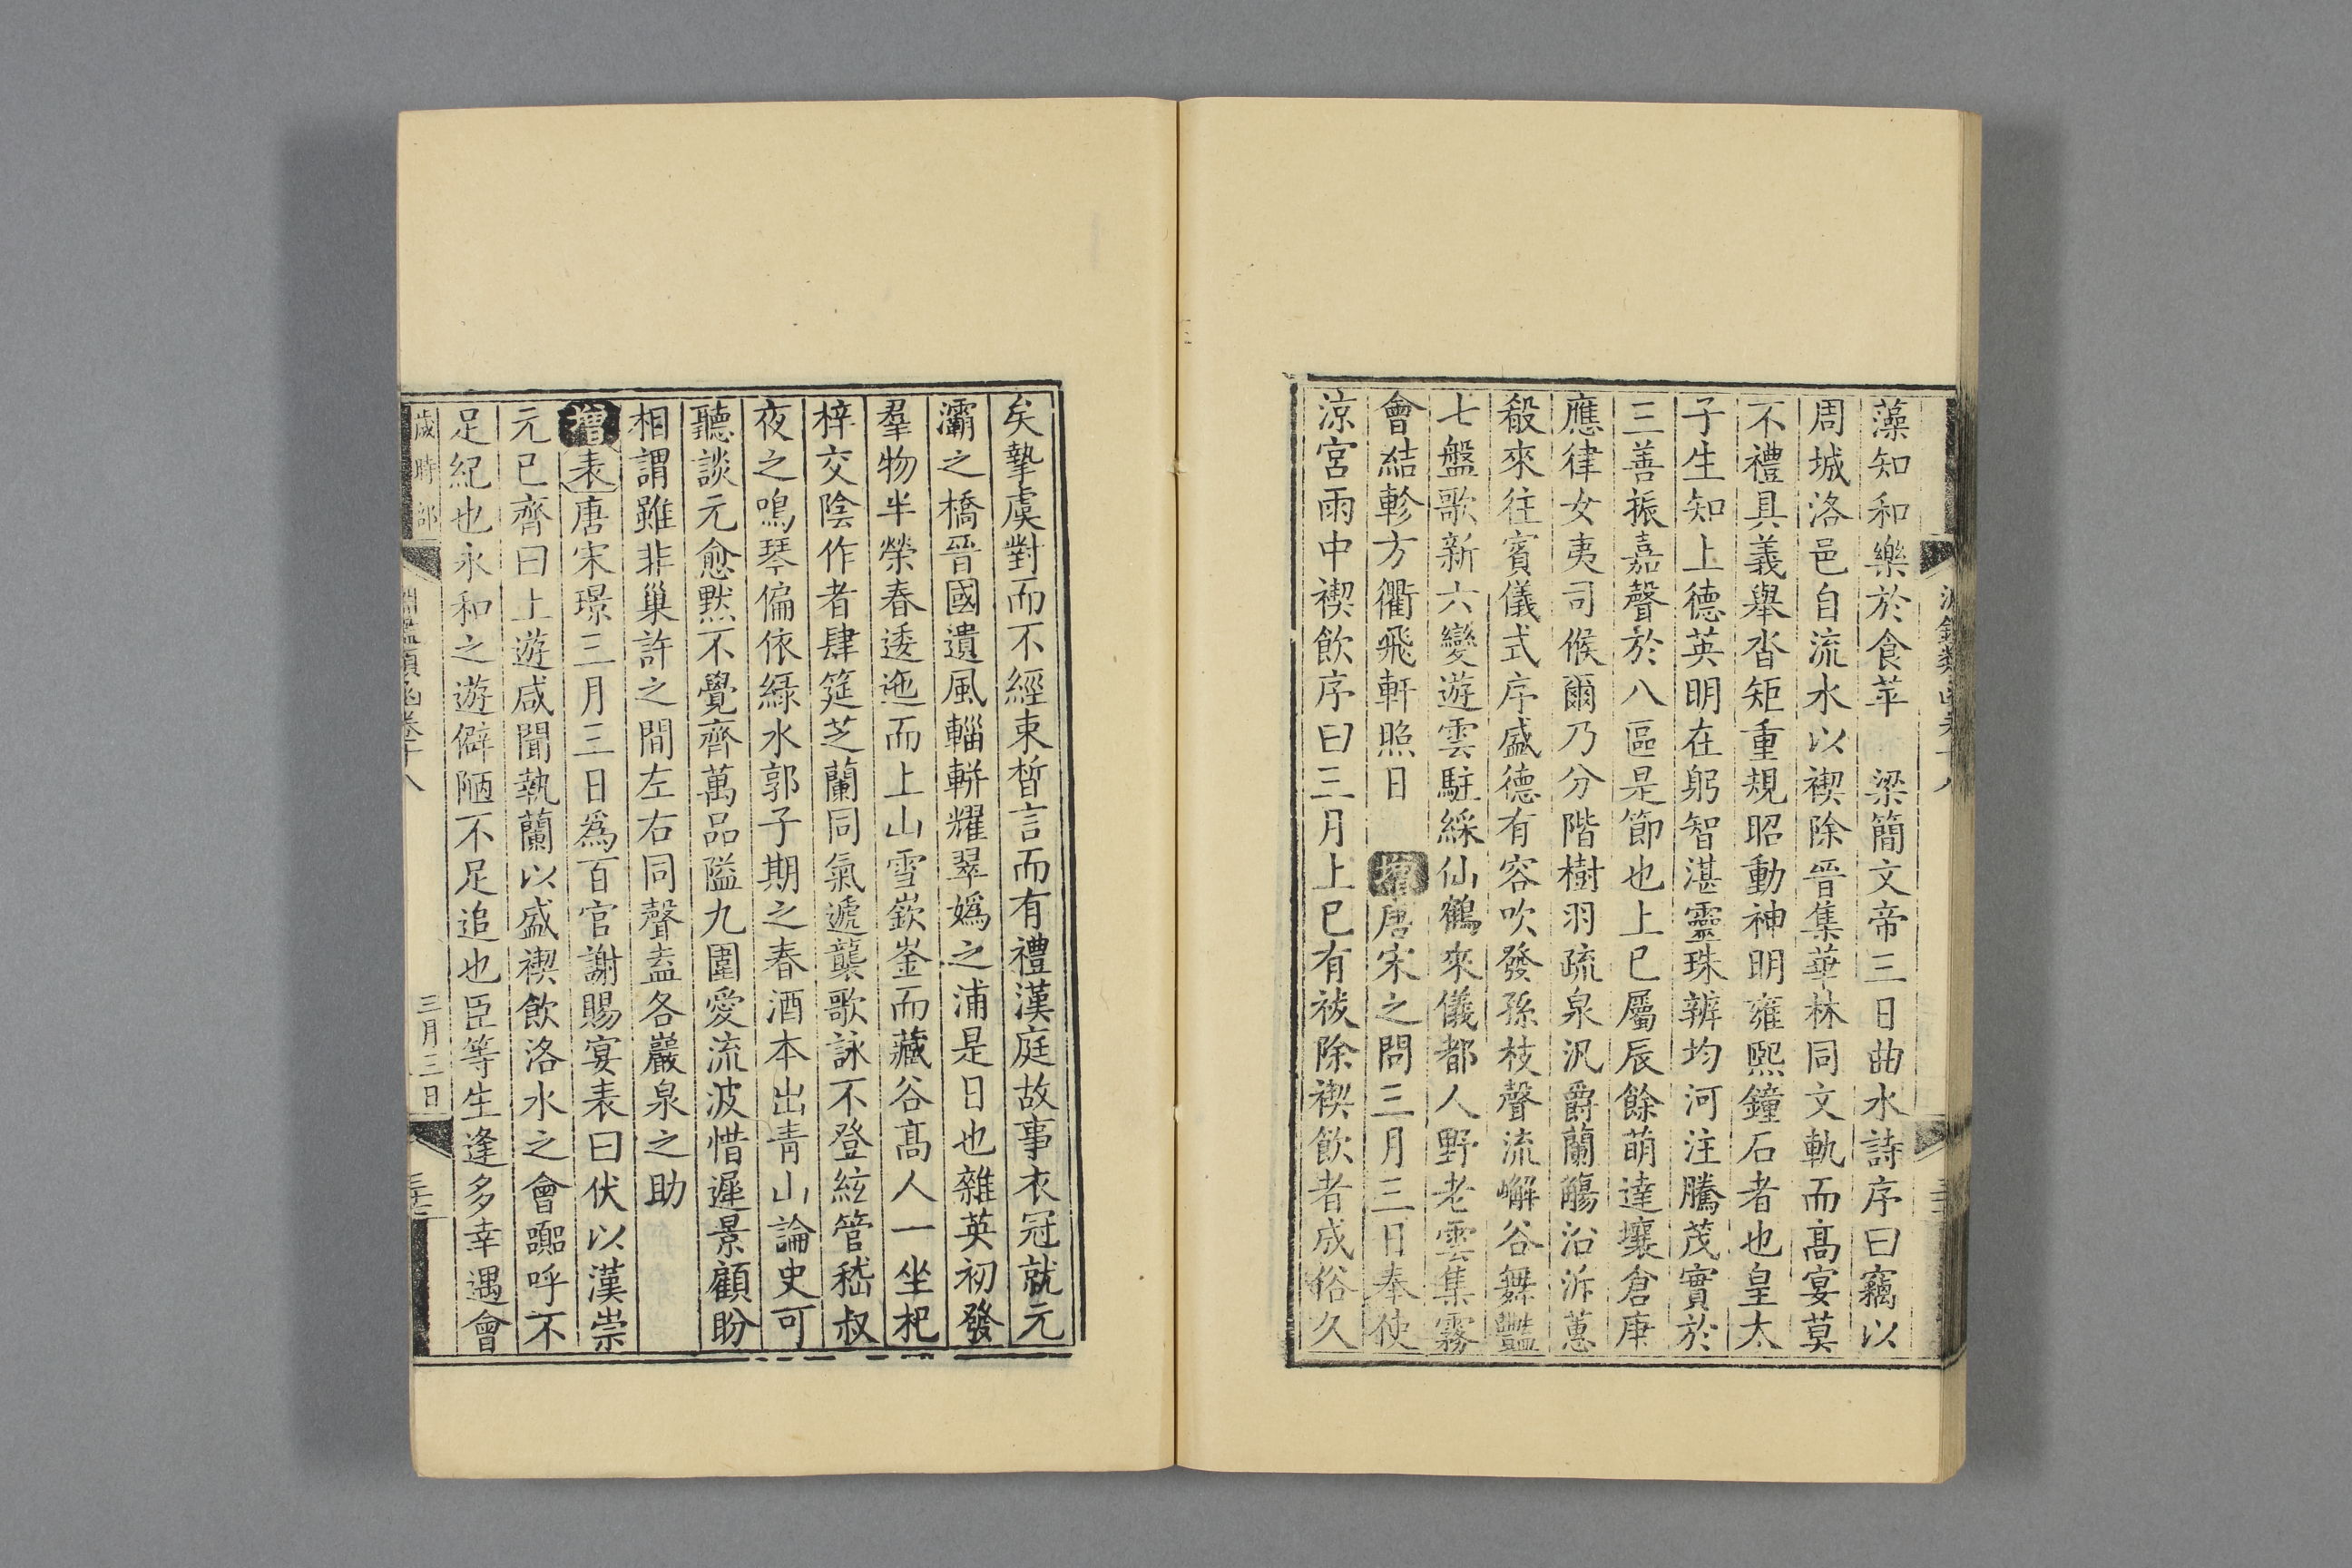 藻知和樂於食苹　梁簡文帝三日曲水詩序曰竊以
周城洛邑自流水以禊除晉集華林同文軌而高宴莫
不禮具義舉沓矩重規昭動神明雍熙鐘石者也皇太
子生知上德英明在躬智湛靈珠辨均河注騰茂實於
三善振嘉聲於八區是節也上巳屬辰餘萌達壤倉庚
應律女夷司候爾乃分階樹羽疏泉汎爵蘭觴沿泝蕙
殽來往賓儀式序盛德有容吹發孫枝聲流嶰谷舞豔
七盤歌新六變遊雲駐綵仙鶴來儀都人野老雲集霧
會結軫方衢飛軒照日　增唐宋之問三月三日奉使
涼宮雨中禊飲序曰三月上巳有祓除禊飲者成俗久
矣摯虞對而不經束皙言而有禮漢庭故事衣冠就元
灞之橋晉國遺風輜軿耀翠嬀之浦是日也雜英初發
羣物半榮春逶迤而上山雪嶔崟而藏谷髙人一坐杞
梓交陰作者肆筵芝蘭同氣遞襲歌詠不登絃管嵇叔
夜之鳴琴偏依綠水郭子期之春酒本出青山論史可
聽談元愈默不覺齊萬品隘九圍愛流波惜遲景顧盼
相謂雖非巢許之間左右同聲盍各巖泉之助
增表唐宋璟三月三日爲百官謝賜宴表曰伏以漢崇
元巳齊曰上遊咸聞執蘭以盛禊飲洛水之會嘂呼不
足紀也永和之遊僻陋不足追也臣等生逢多幸遇會
歲時部　淵鑑類函卷十八　三月三日